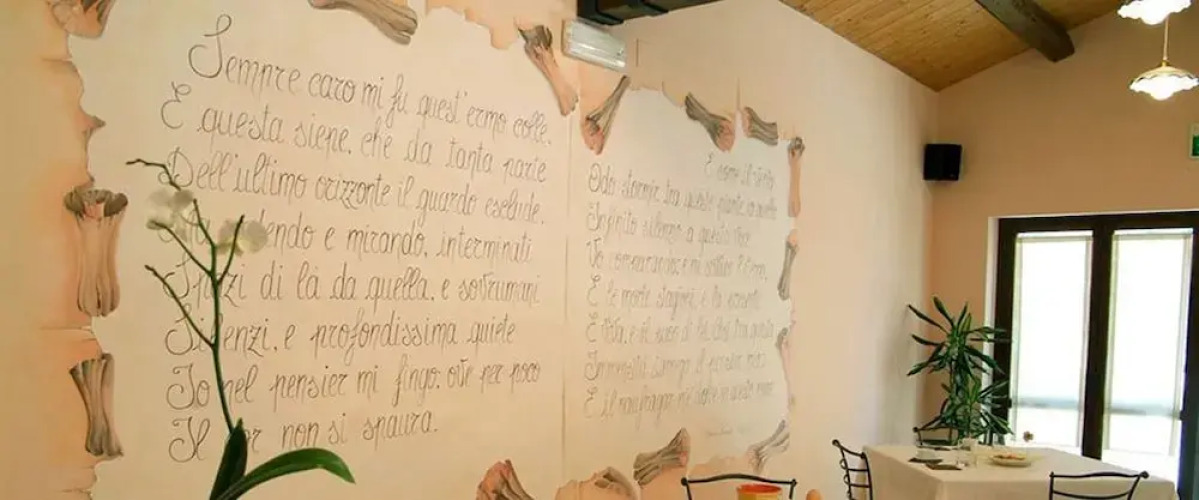 Sempre caro mi fu quest'ermo colle,
E questa siepe, che da tanta parte
Dell'ultimo orizzonte il guardo esclude.
sedendo e mirando, interminati
Spazi di là da quella, e sovrumani
Silenzi, e profondissima quiete
Io nel pensier mi fingo; ove per poco
Il cor non si spaura.
E come il vento
Odo stormir tra queste piante, io quello
Infinito silenzio a questa voce
Vo comparando: e mi sovvien l'eterno,
E le morte stagioni, e la presente
E viva, e il suon di lei. Così tra questa
Immensità s'annega il pensier mio:
E il naufragar m'è dolce in questo mare.